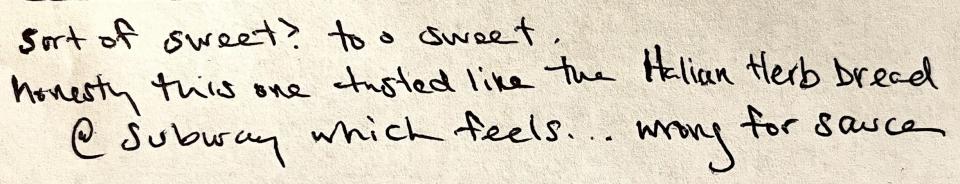 sort of sweet? too sweet.
honestly this one tasted like the Italian Herb bread
@ Subway which feels... wrong for sauce